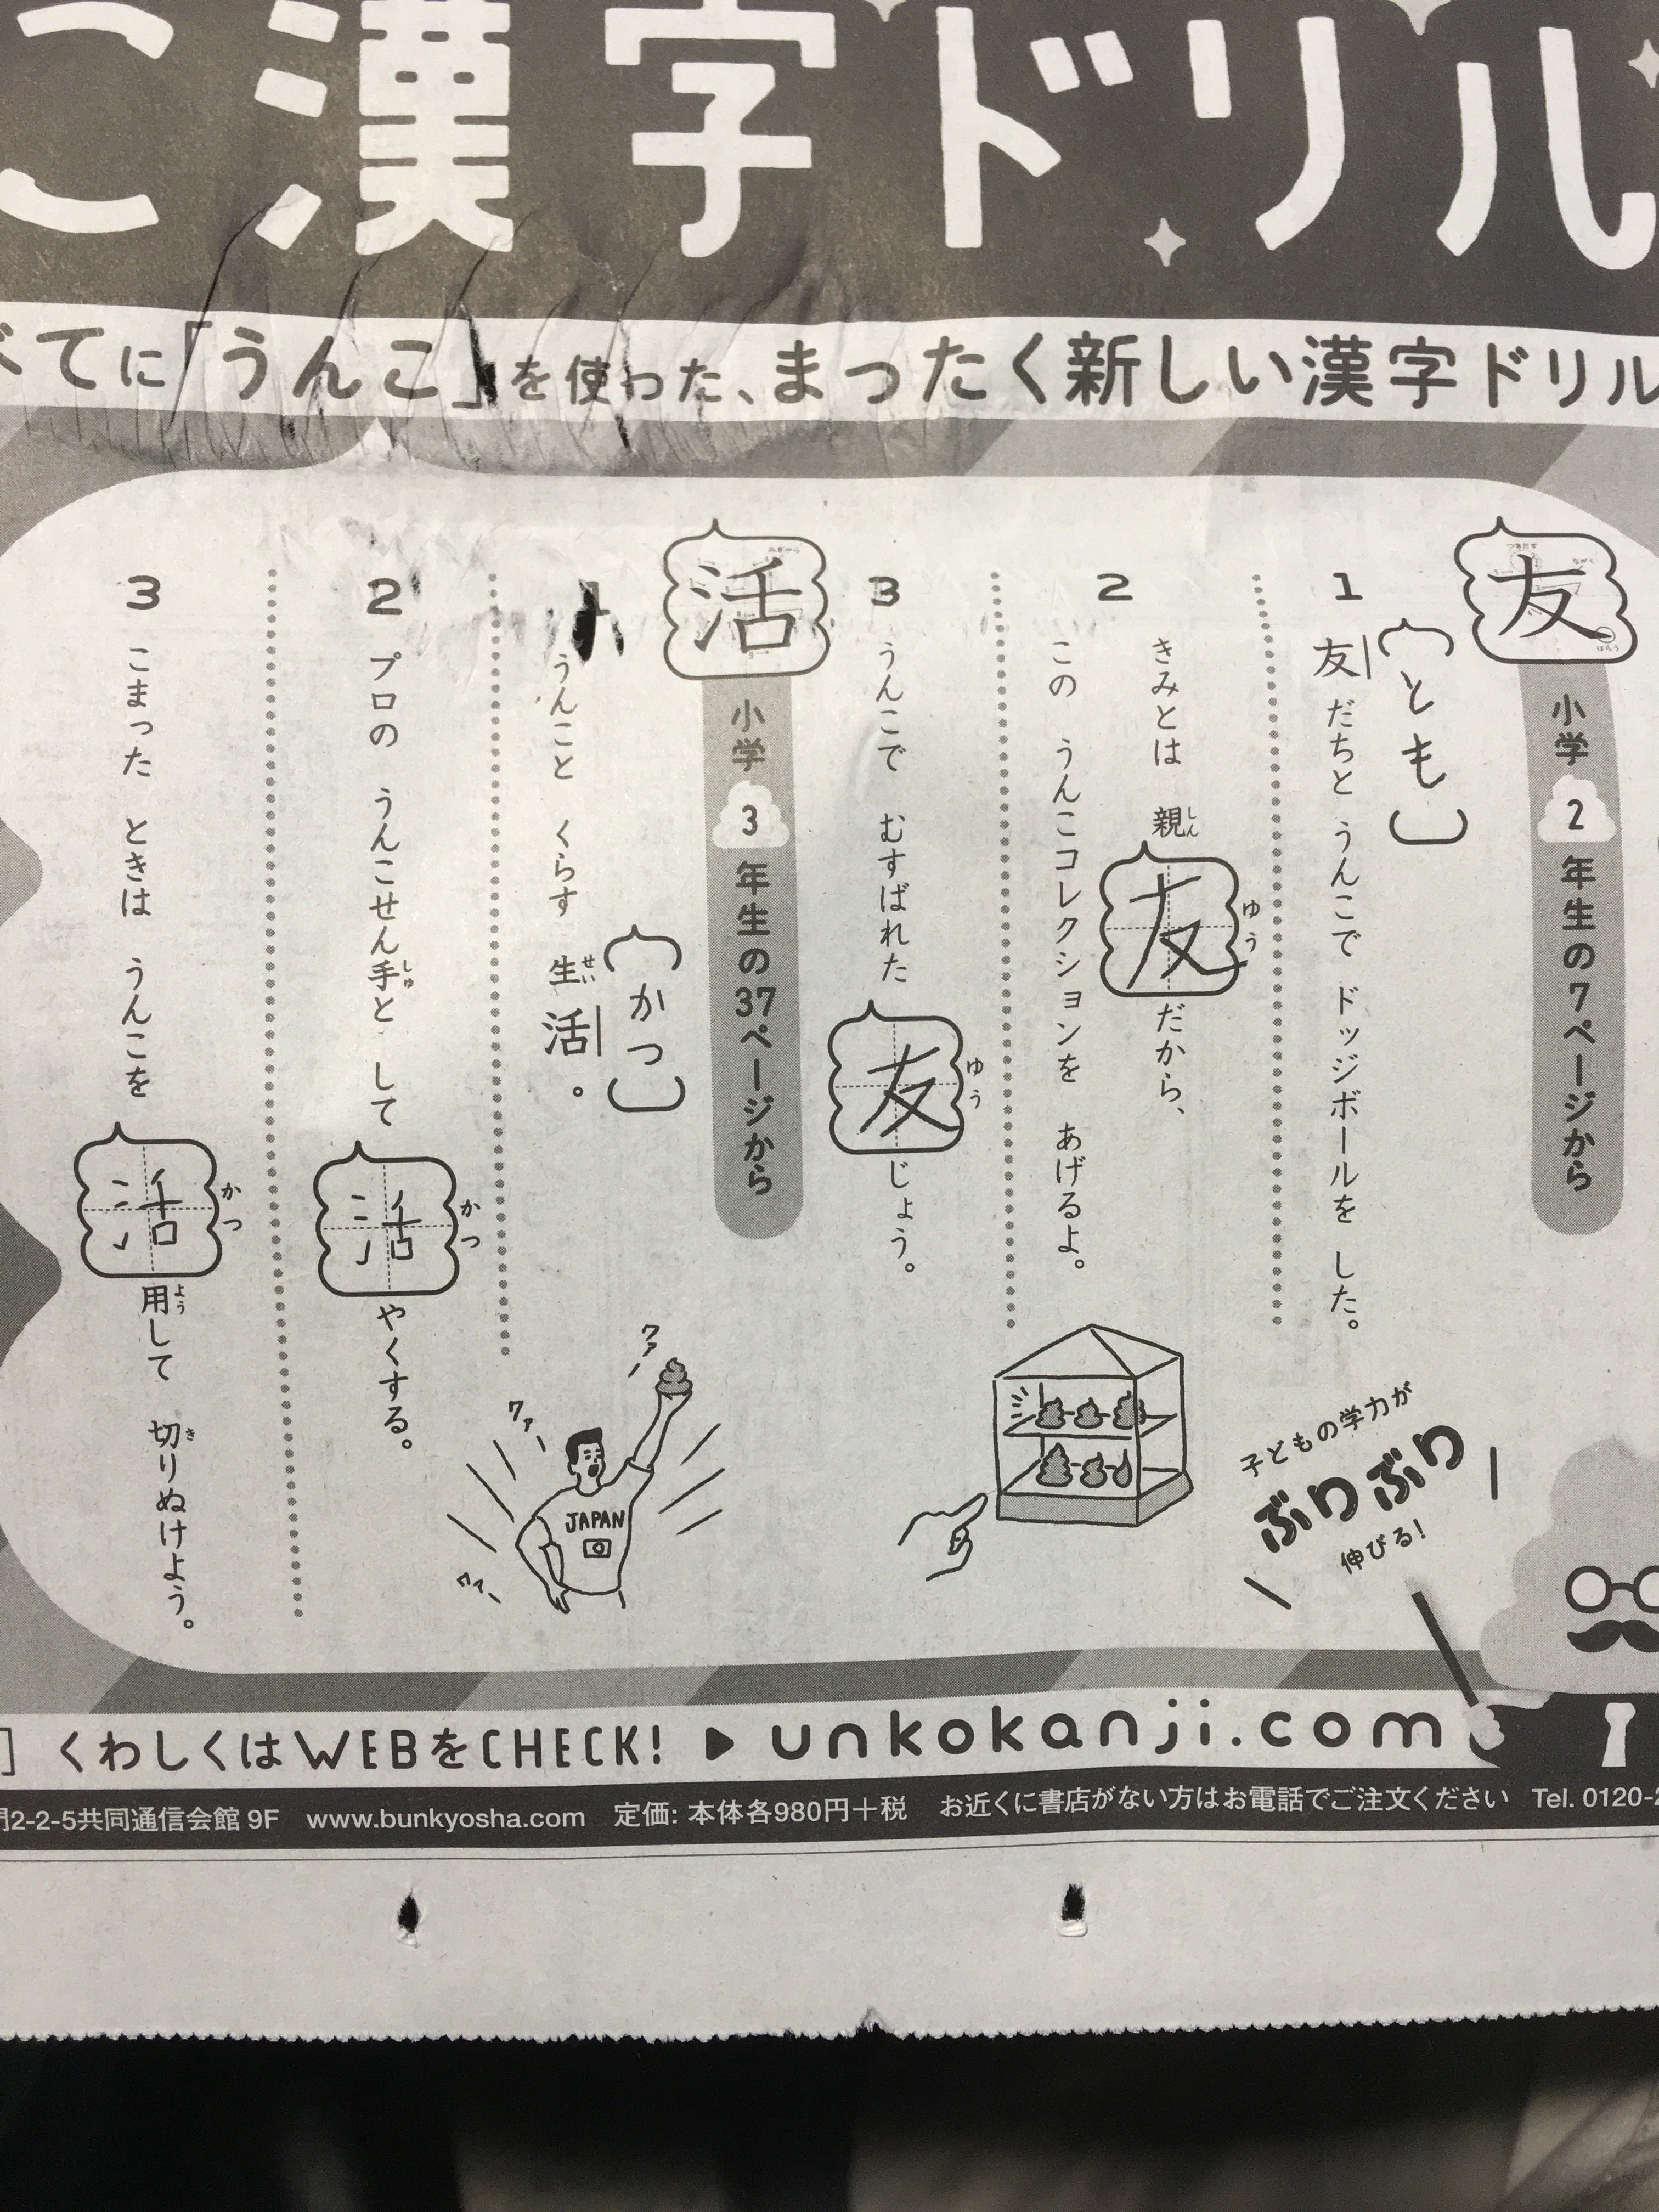 こ漢字ドリル
べてに「うんこ」を使った、まったく新しい漢字ドリル
友
小学2年生の7ページから
1 友だちと うんこで ドッジボールを した。
〔とも〕
2 きみとは 親友だから、
しん
ゆう
この うんこコレクションを あげるよ。
3 うんこで むすばれた 友じょう。
ゆう
活
小学3年生の37ページから
1 うんこと くらす 生活。
せい
〔かつ〕
2 プロの うんこせん手と して 活やくする。
しゅ
かつ
3 こまった ときは うんこを 活用して 切りぬけよう。
かつ
よう
き
ワァー
ワァー
ワァー
JAPAN
子どもの学力が
ぶりぶり
伸びる!
くわしくはWEBをCHECK! ▶ unkokanji.com
2-2-5共同通信会館 9F www.bunkyosha.com 定価: 本体各980円+税 お近くに書店がない方はお電話でご注文ください Tel. 0120-2